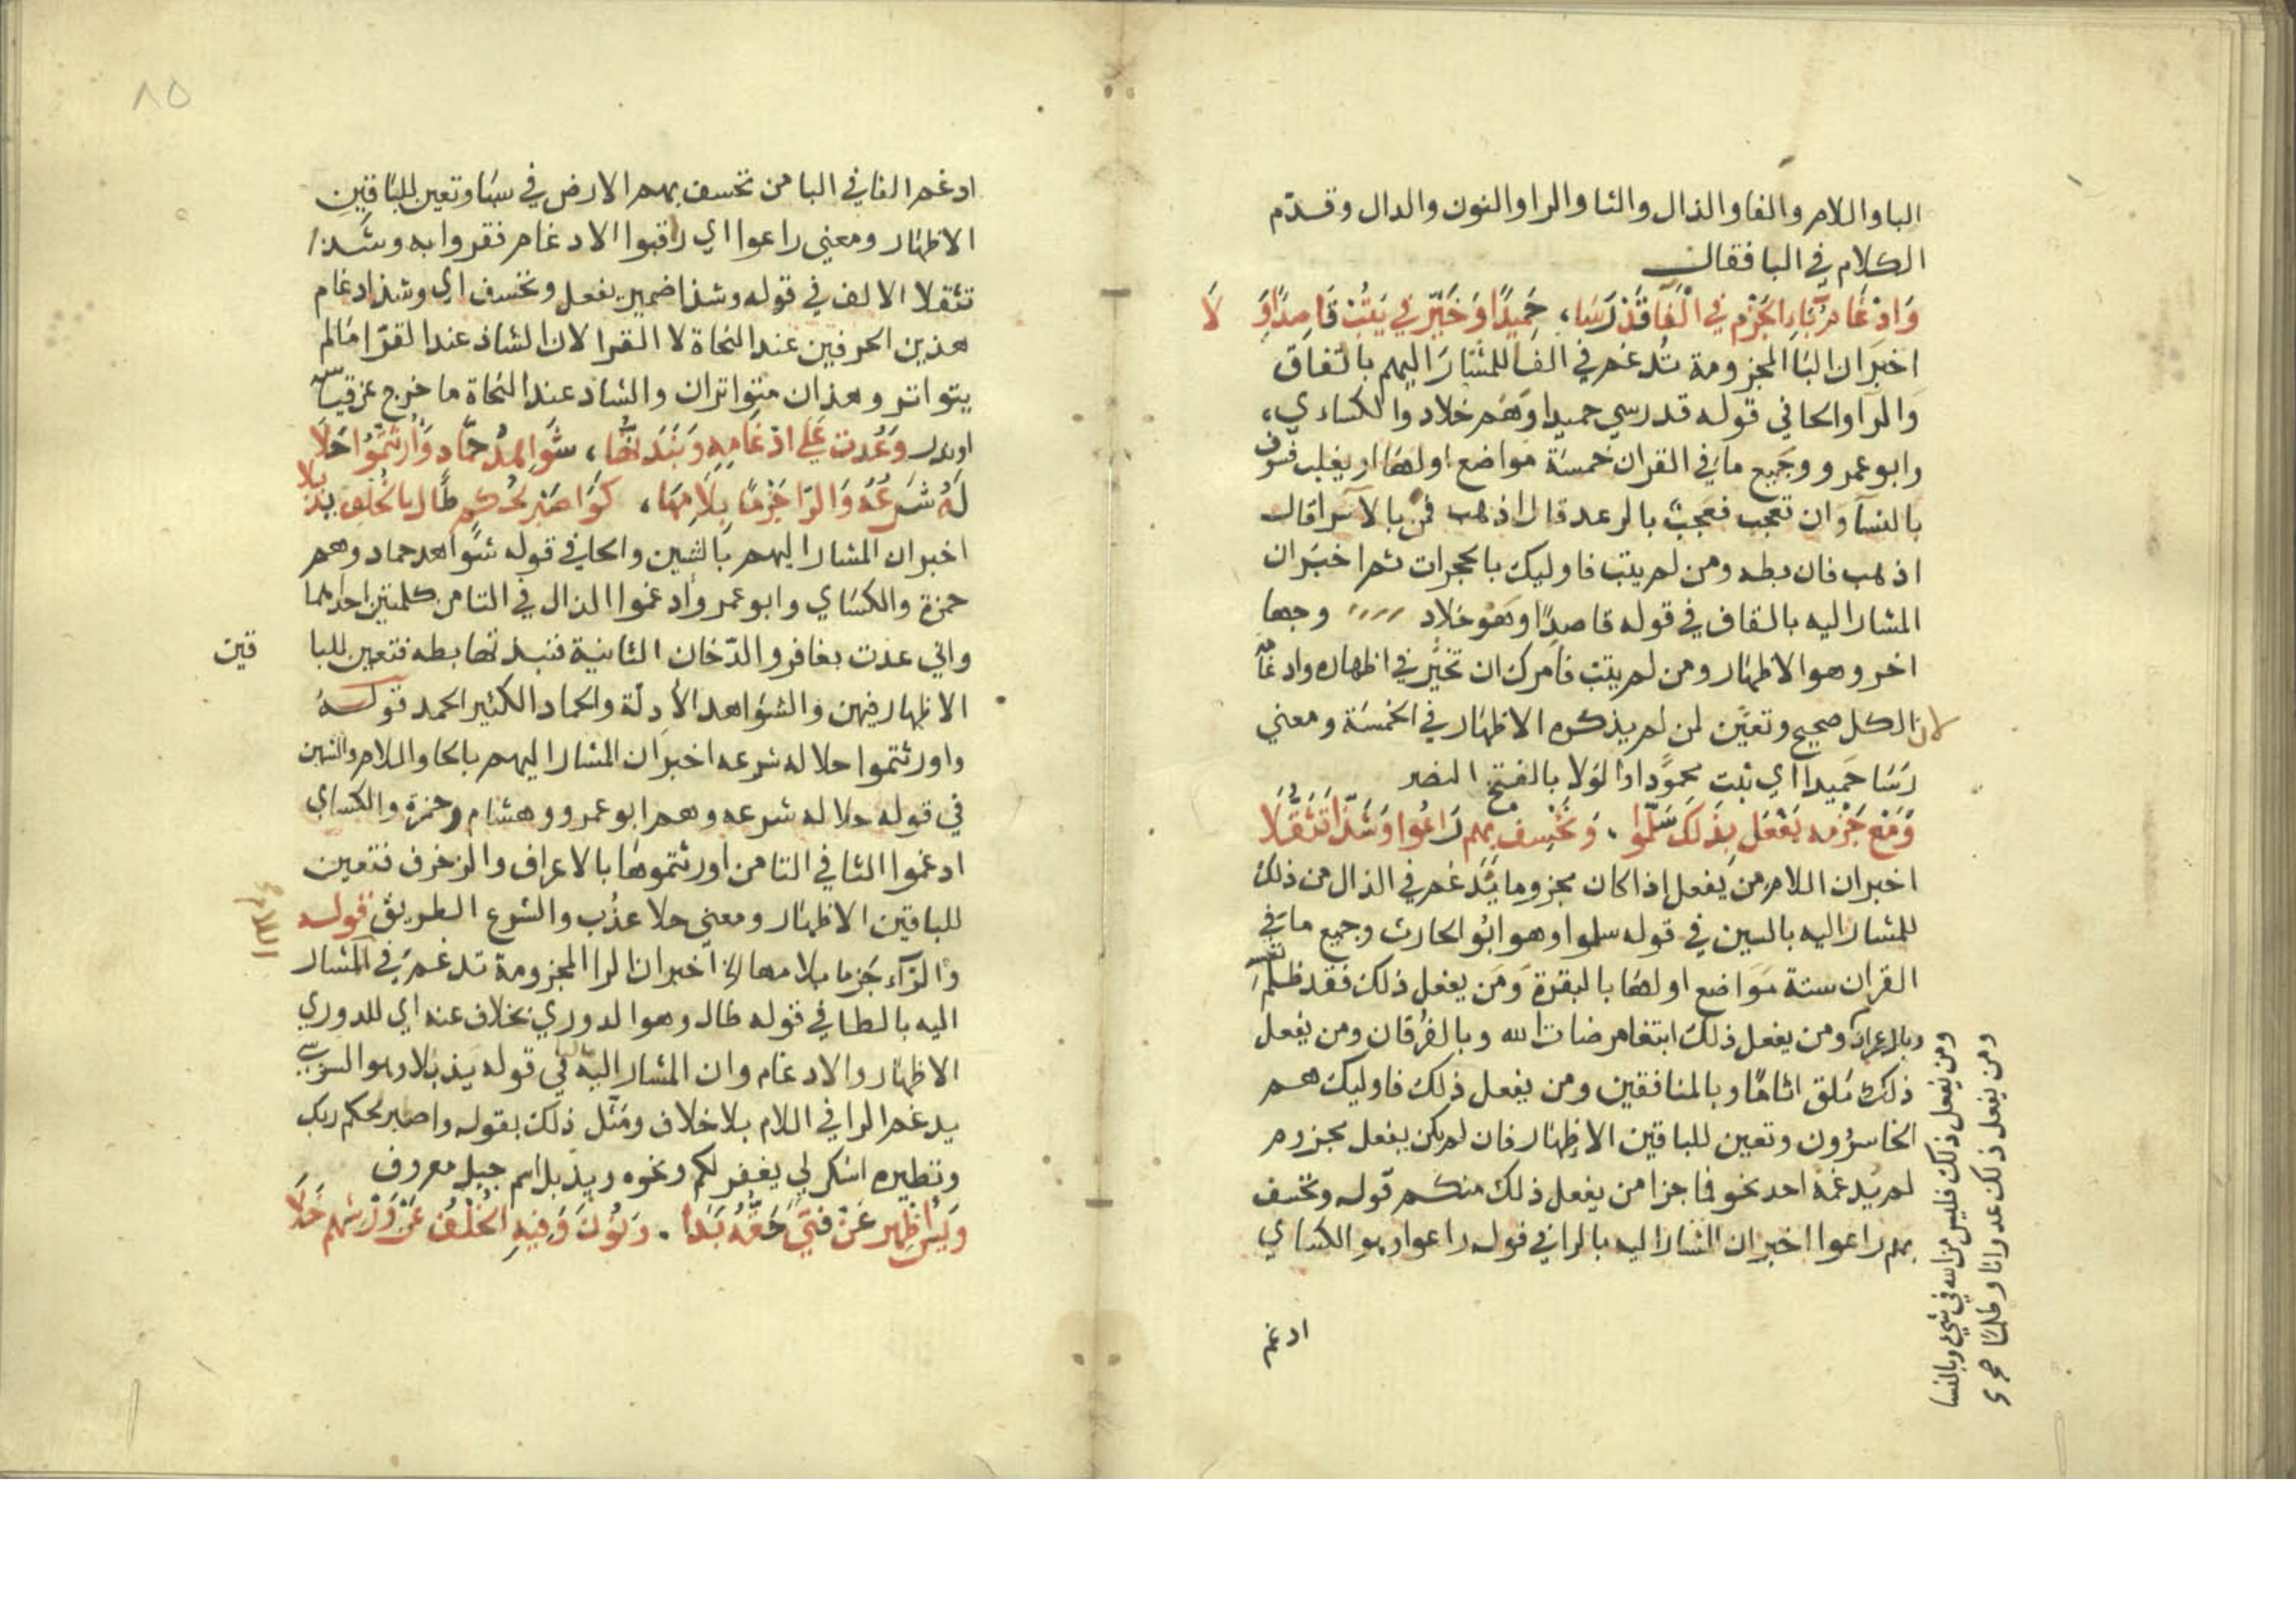 الباواللام والفا والذال والثا والرا والنون والدال وقدّم
الكلام في البا فقال
وَادْغَامُ بَاءِ الجَزْمِ فِي الْفَا قَدْ رَسَا، حَمِيدًا وَخَيِّر في يَتُبْ قَاصِدًا وَلَا
اخبر ان البا المجزومة تُدغم في الفا للمشار اليهم بالقاف
والرا والحا في قوله قد رسي حميدا وهم خلاد والكساءي،
وابو عمرو وجميع ما في القران خمسة مواضع اولها او يغلب فسوف
بالنسآ وان تعجب فعجبٌ بالرعد قال اذهب فمن بالاسرا قال
اذهب فان بطه ومن لم يتب فاوليك بالحجرات ثم اخبر ان
المشار اليه بالقاف في قوله قاصدًا وهو خلاد وجها
اخر وهو الاظهار ومن لم يتب فامرك ان تخيّر في اظهاره وادغامه
لان الكل صحيح وتعيّن لمن لم يذكره الاظهار في الخمسة ومعني
رسَا حَميدا اي ثبت محمودًا والولا بالفتح النصر
وَمَع جَزْمِه يَفْعَل بِذَلِكَ سَلَّموا، وَنَخْسِف بِهِم رَاعُوا وَشَذَّا تَثَقُّلَا
اخبر ان اللام من يفعل إذا كان مجزوما يُدغم في الذال من ذلك
للمشار اليه بالسين في قوله سلموا وهو ابُو الحارث وجميع ما في
القران ستة مَوَاضع اولها بالبقرة وَمَن يفعل ذلك فقد ظلم نفسه
وبال عمران ومن يفعل ذلك ابتغا مرضات الله وبالفرقان ومن يفعل
ذلك يلق اثامًا وبالمنافقين ومن يفعل ذلك فاوليك هم
الخاسرُون وتعين للباقين الاظهار فان لم يكن يفعل مجزوم
لم يُدغمهُ احد نحو فما جزا من يفعل ذلك منكم قوله ونخسف
بهم راعوا اخبر ان المشار اليه بالرا في قوله راعوا وهو الكساي
ادغم
ومن يفعل ذلك فليس من الله في شيء وبالنسا
ومن يفعل ذلك عدوانا وظلمًا
٨٥
ادغم الفا في البا من نخسف بهم الارض في سبا وتعين للبَاقِين
الاظهار ومعني راعوا اي راقبوا الادغام فقروا به وشذا
تثقلا الالف في قوله وشذا ضمير يفعل ونخسف اي وشذ ادغام
هذين الحرفين عند النحاة لا القرا لان الشاذ عند القرّا مَا لم
يتواتر وهذان متواتران والشاذ عند النحاة ما خرج عن قياس
وَعُذْت عَلَي ادْغَامِهِ وَنَبَذتُها، شَوَاهِدُ حَمَّادٍ وَأُورِثْتُمُوا حَلَا
لَهُ شَرْعُهُ وَالرَّا جَزْمًا بِلَامِهَا، كَوَاصْبِر لحُكمِ طَال بالخُلف يَذْبلا
اخبر ان المشار اليهم بالشين والحا في قوله شواهد حماد وهم
حمزة والكساي وابو عمرو ادغموا الذال في التا من كلمتين احداهما
واني عذت بغافر والدّخان الثانية فنبذتها بطه فتعين للبا
قين
الاظهار فيهن والشواهد الأدلّة والحماد الكثير الحمد قولهُ
واورثتموا حلا له شرعه اخبر ان المشار اليهم بالحا واللام والشين
في قوله حلا له شرعه وهم ابو عمرو وهشام وحمزة والكساي
ادغموا الثا في التا من اورثتموها بالاعراف والزخرف فتعين
للباقين الاظهار ومعني حلا عذُب والشرع الطريق قوله
والرآء جَزما بلامها الخ اخبر ان الرا المجزومة تدغم في المشار
اليه بالطا في قوله طال وهو الدوري بخلاف عنه اي للدوري
الاظهار والادغام وان المشار اليه باليا في قوله يذبلا وهو السوسي
يدغم الرا في اللام بلا خلاف ومَثّل ذلك بقوله واصبر لحكم ربك
ونظيره اشكر لي يغفر لكم ونحوه ويذبل اسم جبل معروف
وَيس اظْهِر عَنْ فَتًي حَقُّهُ بَدَا، وَنُونَ وَفِيهِ الخُلْفُ عَنْ وَرْشِهِم خَلَا